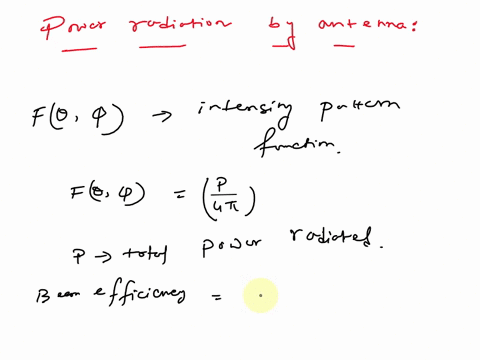 Power radiation by antenna:
F(θ, φ) → intensing pattern
function.
F(θ, φ) = (P/4π)
P → total power radiated.
Beam efficiency =